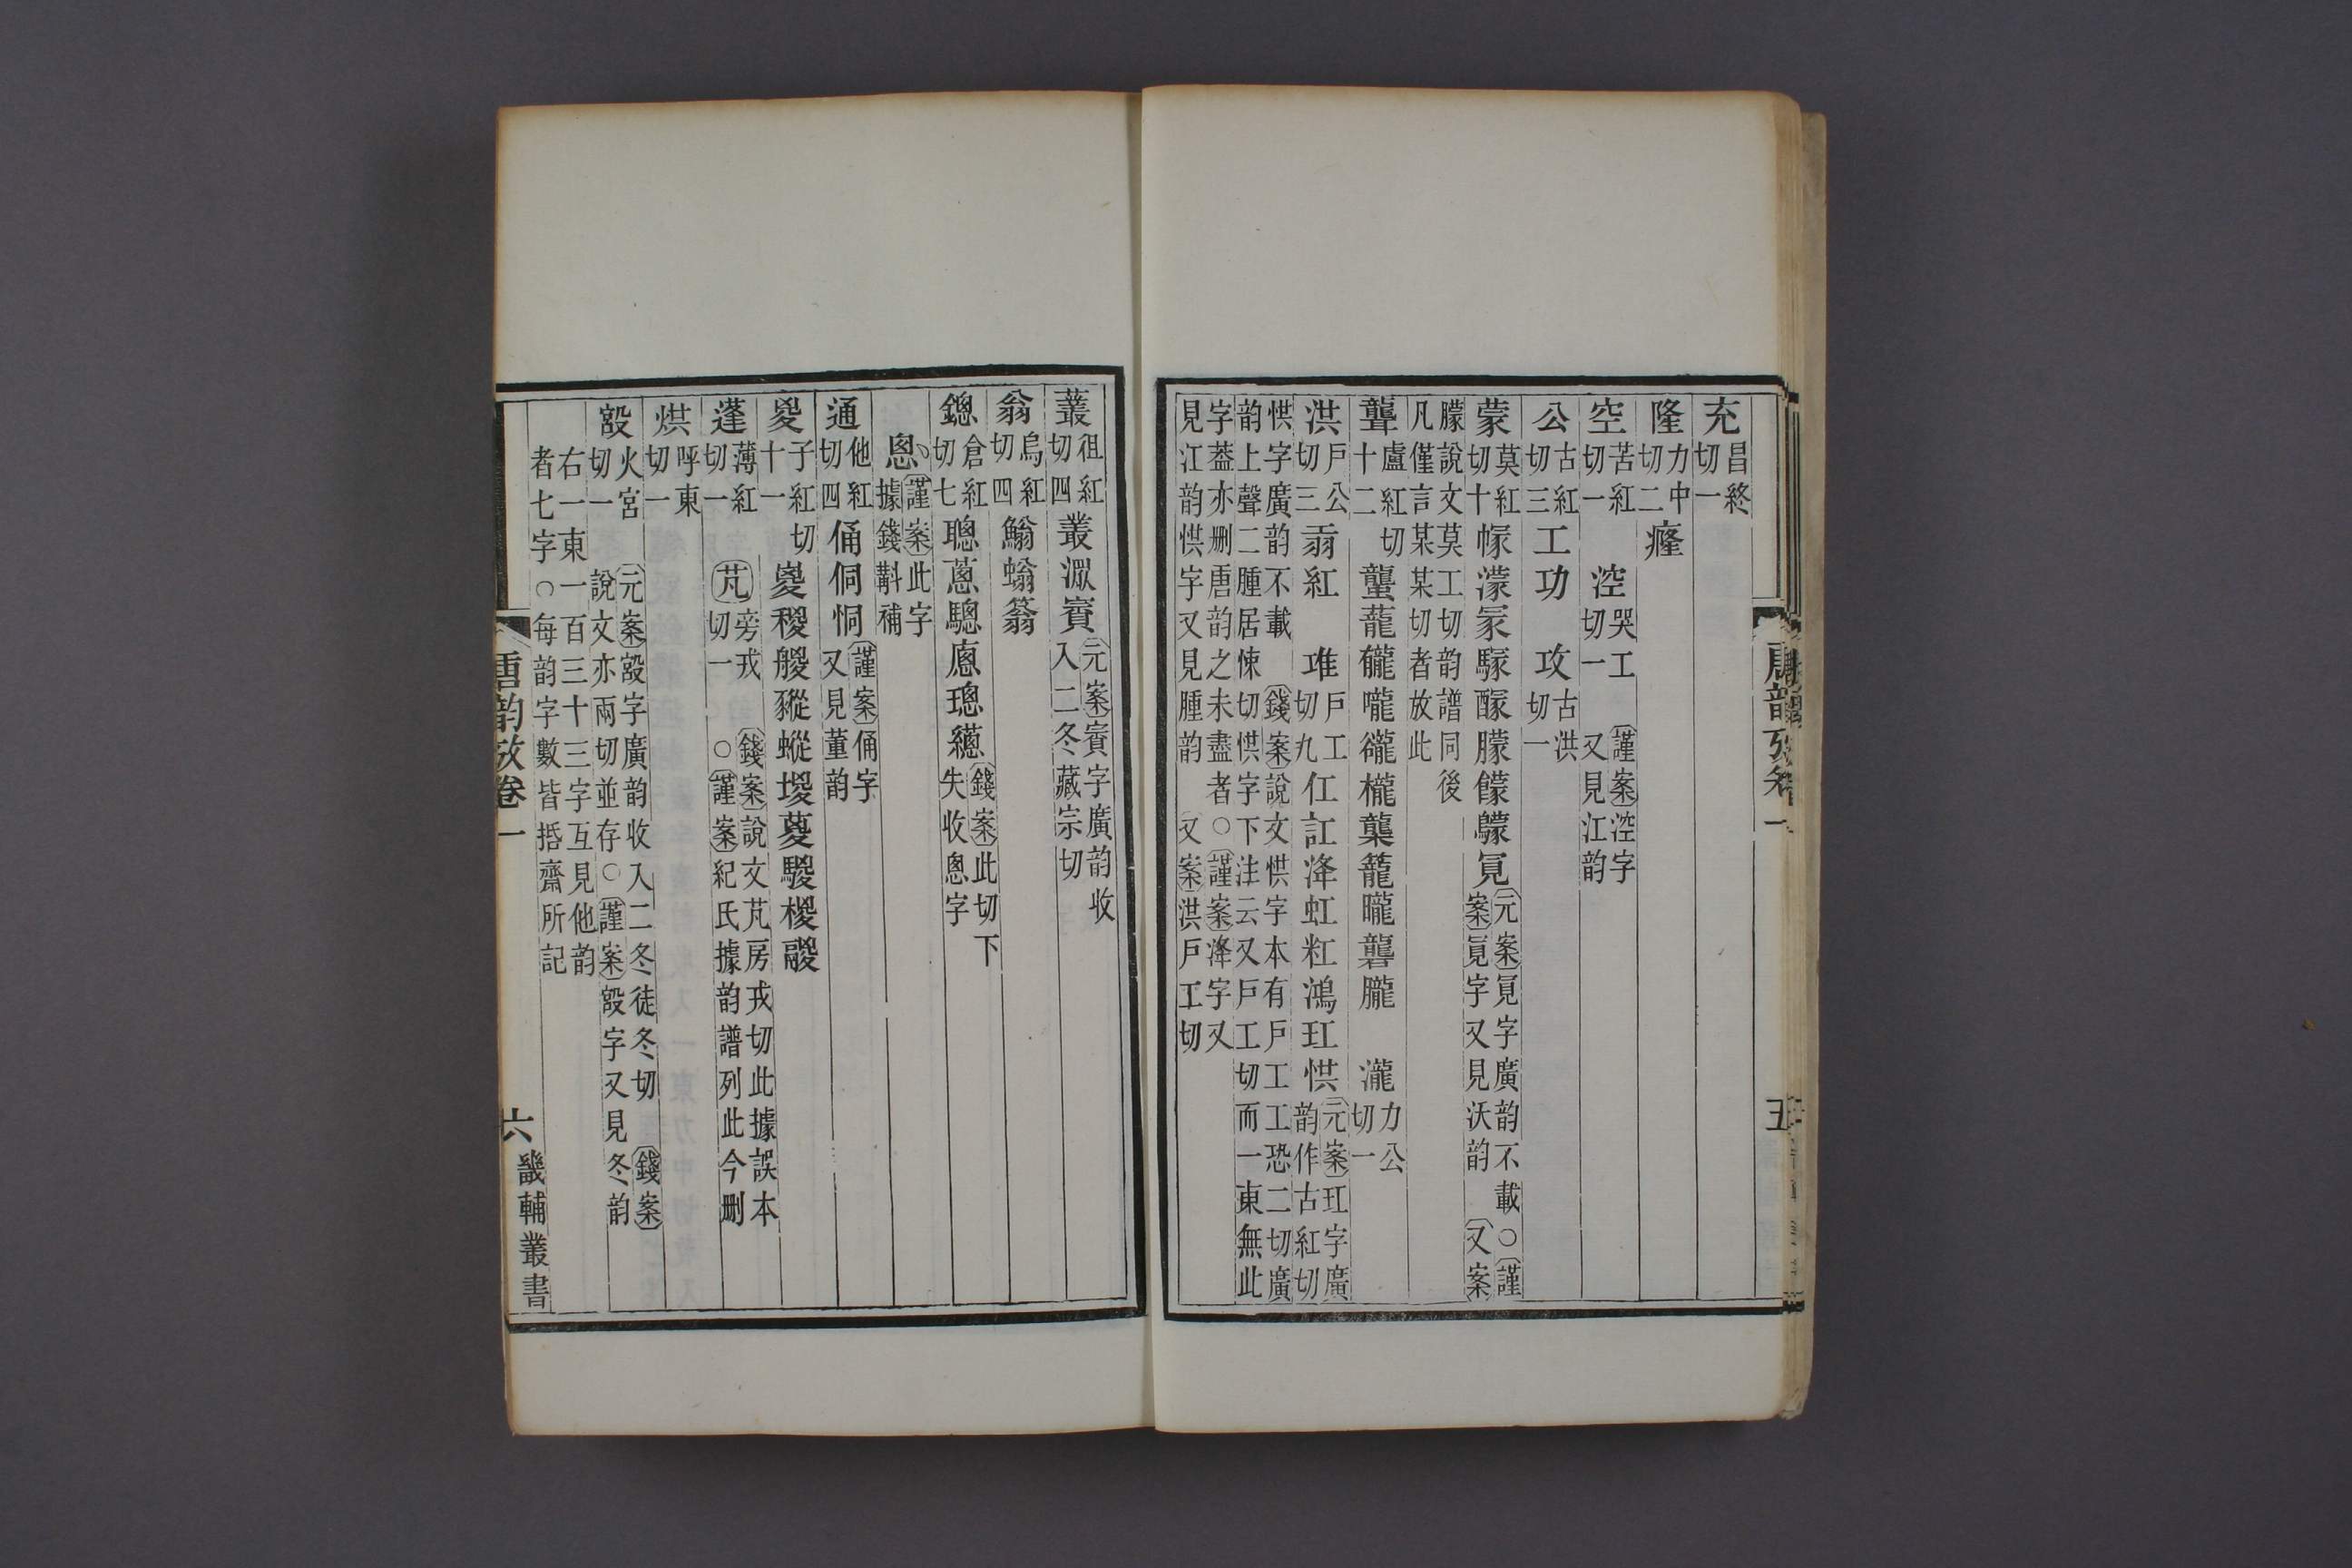 唐韵攷卷一
五
充昌終切一
隆力中切二癃
空苦紅切一 涳哭工切一 謹案涳字又見江韵
公古紅切三工功 攻古洪切一
蒙莫紅切十幏濛冡騣醵朦饛驋冝元案冝字廣韵不載○謹案冝字又見沃韵 又案
朦說文莫工切韵譜同後凡僅言某某切者放此
聾盧紅切十二蠪蘢䡁嚨襱櫳龒籠曨礱朧 瀧力公切一
洪戶公切三䨎紅 琟戶工切九仜訌洚虹粠鴻玒㤨元案玒字廣韵作古紅切
㤨字廣韵不載 錢案說文㤨字本有戶工工恐二切廣韵上聲二腫居悚切㤨字下注云又戶工切而一東無此
字葢亦刪唐韵之未盡者○謹案洚字又見江韵㤨字又見腫韵 又案洪戶工切
叢徂紅切四藂潈賨元案賨字廣韵收入二冬藏宗切
翁烏紅切四鰯螉蓊
鏓倉紅切七聰蔥驄廏璁繱錢案此切下失收悤字
悤謹案此字據錢斠補
通他紅切四俑侗恫謹案俑字又見董韵
㚇子紅切十一嵏稯艐豵蝬堫葼騣椶鬷
蓬薄紅切一 芃旁戎切一 錢案說文芃房戎切此據誤本○謹案紀氏據韵譜列此今刪
烘呼東切一
㲃火宮切一 元案㲃字廣韵收入二冬徒冬切 錢案說文亦兩切並存○謹案㲃字又見冬韵
右一東一百三十三字互見他韵者七字○每韵字數皆括齋所記
唐韵攷卷一
六
畿輔叢書